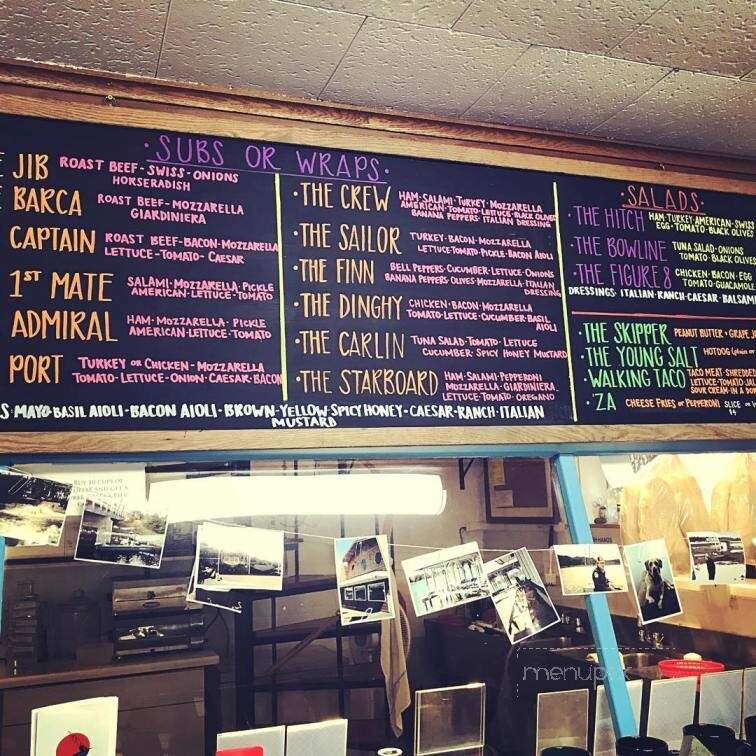 ·SUBS OR WRAPS·
JIB ROAST BEEF-SWISS-ONIONS
HORSERADISH
BARCA ROAST BEEF-MOZZARELLA
GIARDINIERA
CAPTAIN ROAST BEEF-BACON-MOZZARELLA
LETTUCE-TOMATO-CAESAR
1ST MATE SALAMI-MOZZARELLA-PICKLE
AMERICAN-LETTUCE-TOMATO
ADMIRAL HAM-MOZZARELLA-PICKLE
AMERICAN-LETTUCE-TOMATO
PORT TURKEY OR CHICKEN-MOZZARELLA
TOMATO-LETTUCE-ONION-CAESAR-BACON
·THE CREW HAM-SALAMI-TURKEY-MOZZARELLA
AMERICAN-TOMATO-LETTUCE-BLACK OLIVES
BANANA PEPPERS-ITALIAN DRESSING
·THE SAILOR TURKEY-BACON-MOZZARELLA
LETTUCE-TOMATO-PICKLE-BACON AIOLI
·THE FINN BELL PEPPERS-CUCUMBER-LETTUCE-ONIONS
BANANA PEPPERS-OLIVES-MOZZARELLA-ITALIAN
DRESSING
·THE DINGHY CHICKEN-BACON-MOZZARELLA
TOMATO-LETTUCE-CUCUMBER-BASIL
AIOLI
·THE CARLIN TUNA SALAD-TOMATO-LETTUCE
CUCUMBER-SPICY HONEY MUSTARD
·THE STARBOARD HAM-SALAMI-PEPPERONI
MOZZARELLA-GIARDINIERA
LETTUCE-TOMATO-OREGANO
S·MAYO-BASIL AIOLI-BACON AIOLI-BROWN-YELLOW-SPICY HONEY-CAESAR-RANCH-ITALIAN
MUSTARD
·SALADS·
·THE HITCH HAM-TURKEY-AMERICAN-SWISS
EGG-TOMATO-BLACK OLIVES
·THE BOWLINE TUNA SALAD-ONIONS
TOMATO-BLACK OLIVES
·THE FIGURE 8 CHICKEN-BACON-EGG
TOMATO-GUACAMOLE
DRESSINGS-ITALIAN-RANCH-CAESAR-BALSAM
·THE SKIPPER PEANUT BUTTER + GRAPE
·THE YOUNG SALT HOTDOG
·WALKING TACO TACO MEAT-SHREDDED
LETTUCE-TOMATO
SOUR CREAM-IN A
·'ZA CHEESE FRIES OR PEPPERONI SLICE
$4
HANDS
menupix